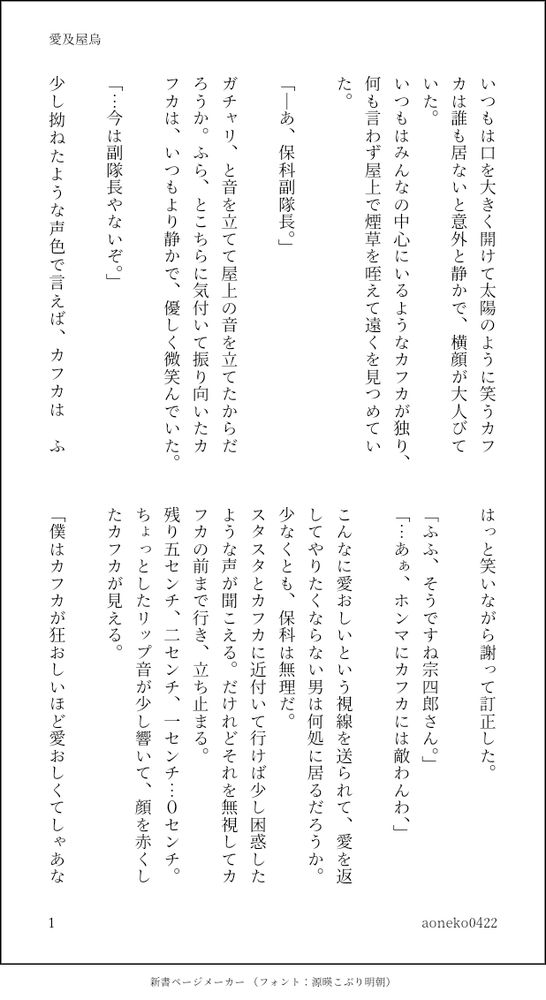 愛及屋烏
いつもは口を大きく開けて太陽のように笑うカフ
カは誰も居ないと意外と静かで、横顔が大人びて
いた。
いつもはみんなの中心にいるようなカフカが独り、
何も言わず屋上で煙草を咥えて遠くを見つめてい
た。
「―あ、保科副隊長。」
ガチャリ、と音を立てて屋上の音を立てたからだ
ろうか。ふら、とこちらに気付いて振り向いたカ
フカは、いつもより静かで、優しく微笑んでいた。
「…今は副隊長やないぞ。」
少し拗ねたような声色で言えば、カフカは　ふ
はっと笑いながら謝って訂正した。
「ふふ、そうですね宗四郎さん。」
「…あぁ、ホンマにカフカには敵わんわ、」
こんなに愛おしいという視線を送られて、愛を返
してやりたくならない男は何処に居るだろうか。
少なくとも、保科は無理だ。
スタスタとカフカに近付いて行けば少し困惑した
ような声が聞こえる。だけれどそれを無視してカ
フカの前まで行き、立ち止まる。
残り五センチ、二センチ、一センチ…０センチ。
ちょっとしたリップ音が少し響いて、顔を赤くし
たカフカが見える。
「僕はカフカが狂おしいほど愛おしくてしゃあな
1
aoneko0422
新書ページメーカー（フォント：源暎こぶり明朝）